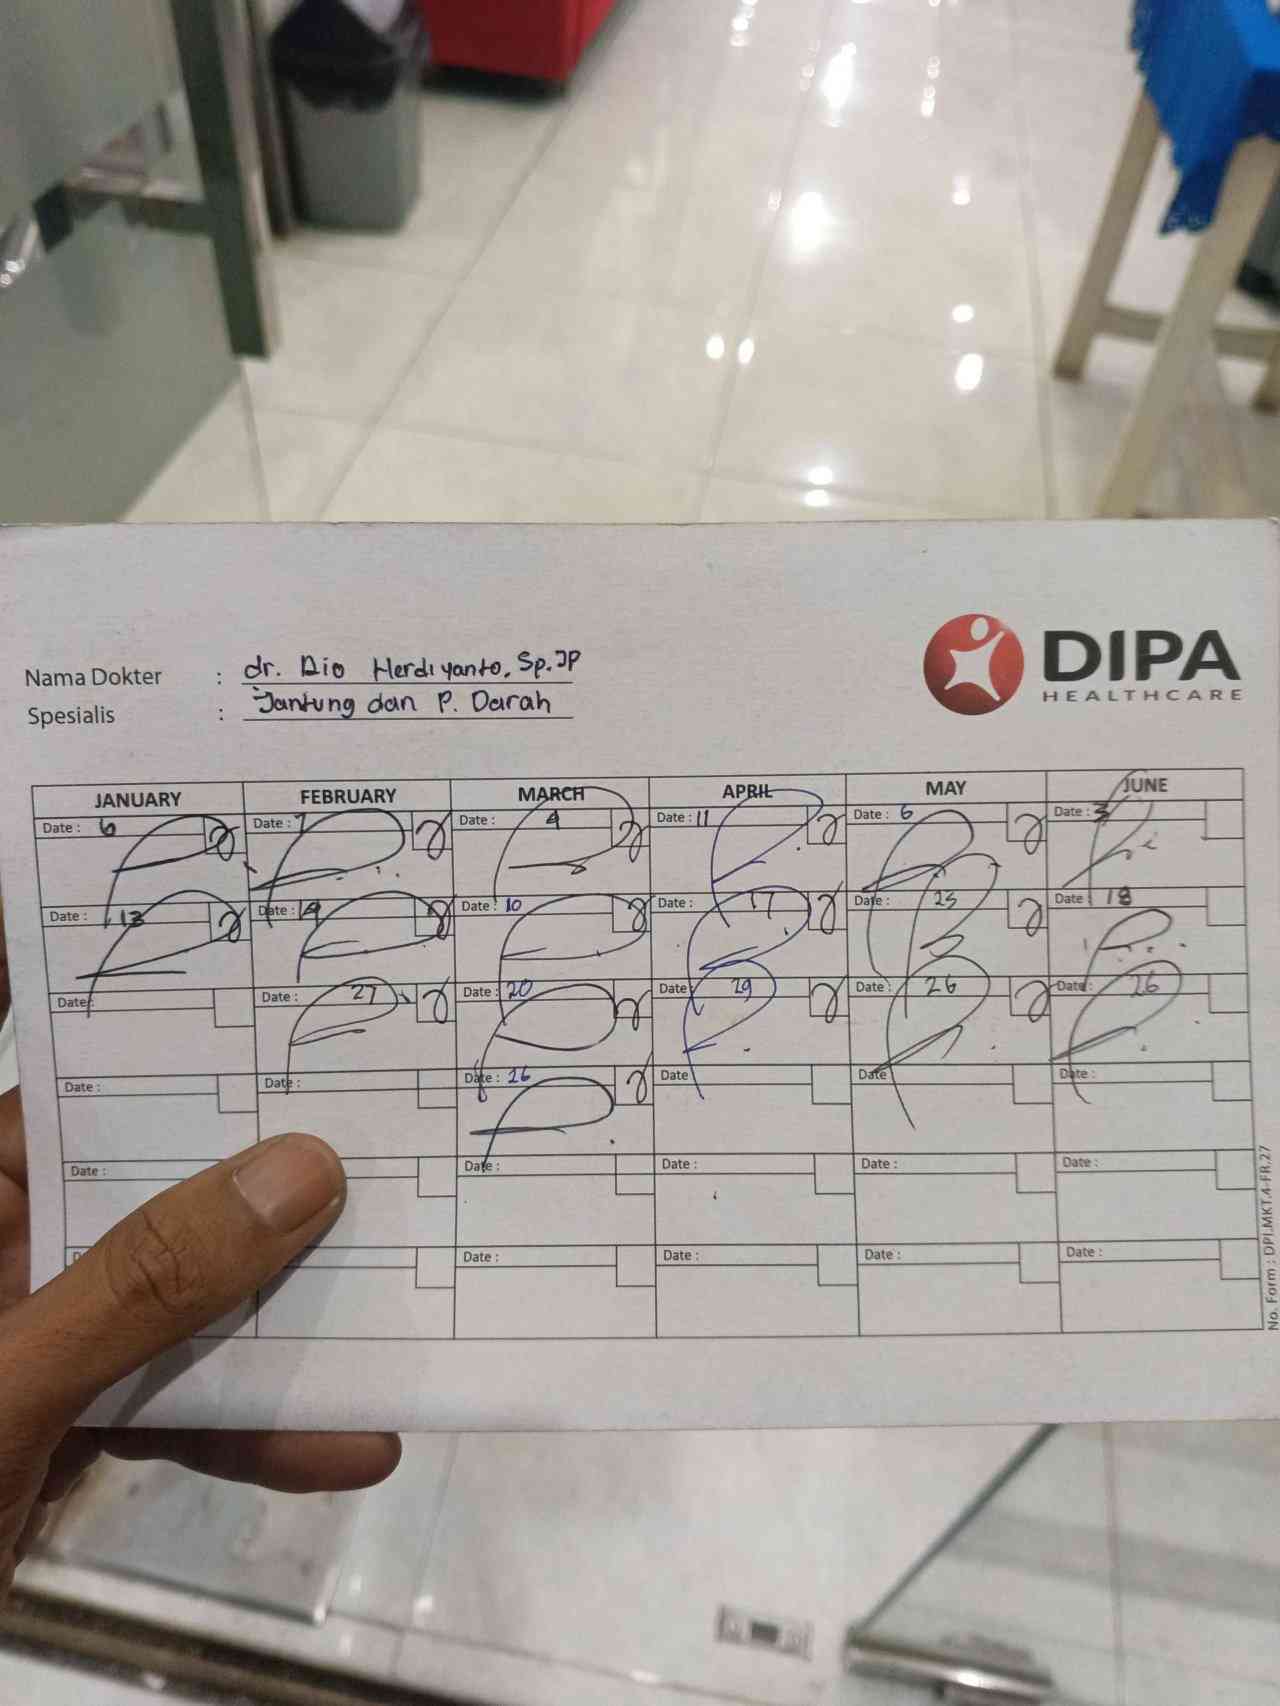 Nama Dokter : dr. Dio Herdiyanto, Sp.JP
Spesialis : Jantung dan P. Darah
DIPA
HEALTHCARE
JANUARY FEBRUARY MARCH APRIL MAY JUNE
Date : 6 Date : 7 Date : 4 Date : 11 Date : 6 Date : 3
Date : 13 Date : Date : 10 Date : 17 Date : 25 Date : 18
Date : Date : 27 Date : 20 Date : 29 Date : 26 Date : 26
Date : Date : Date : 26 Date Date Date :
Date : Date : Date : Date : Date :
D Date : Date : Date : Date :
No. Form : DPI.MKT.4-FR.27